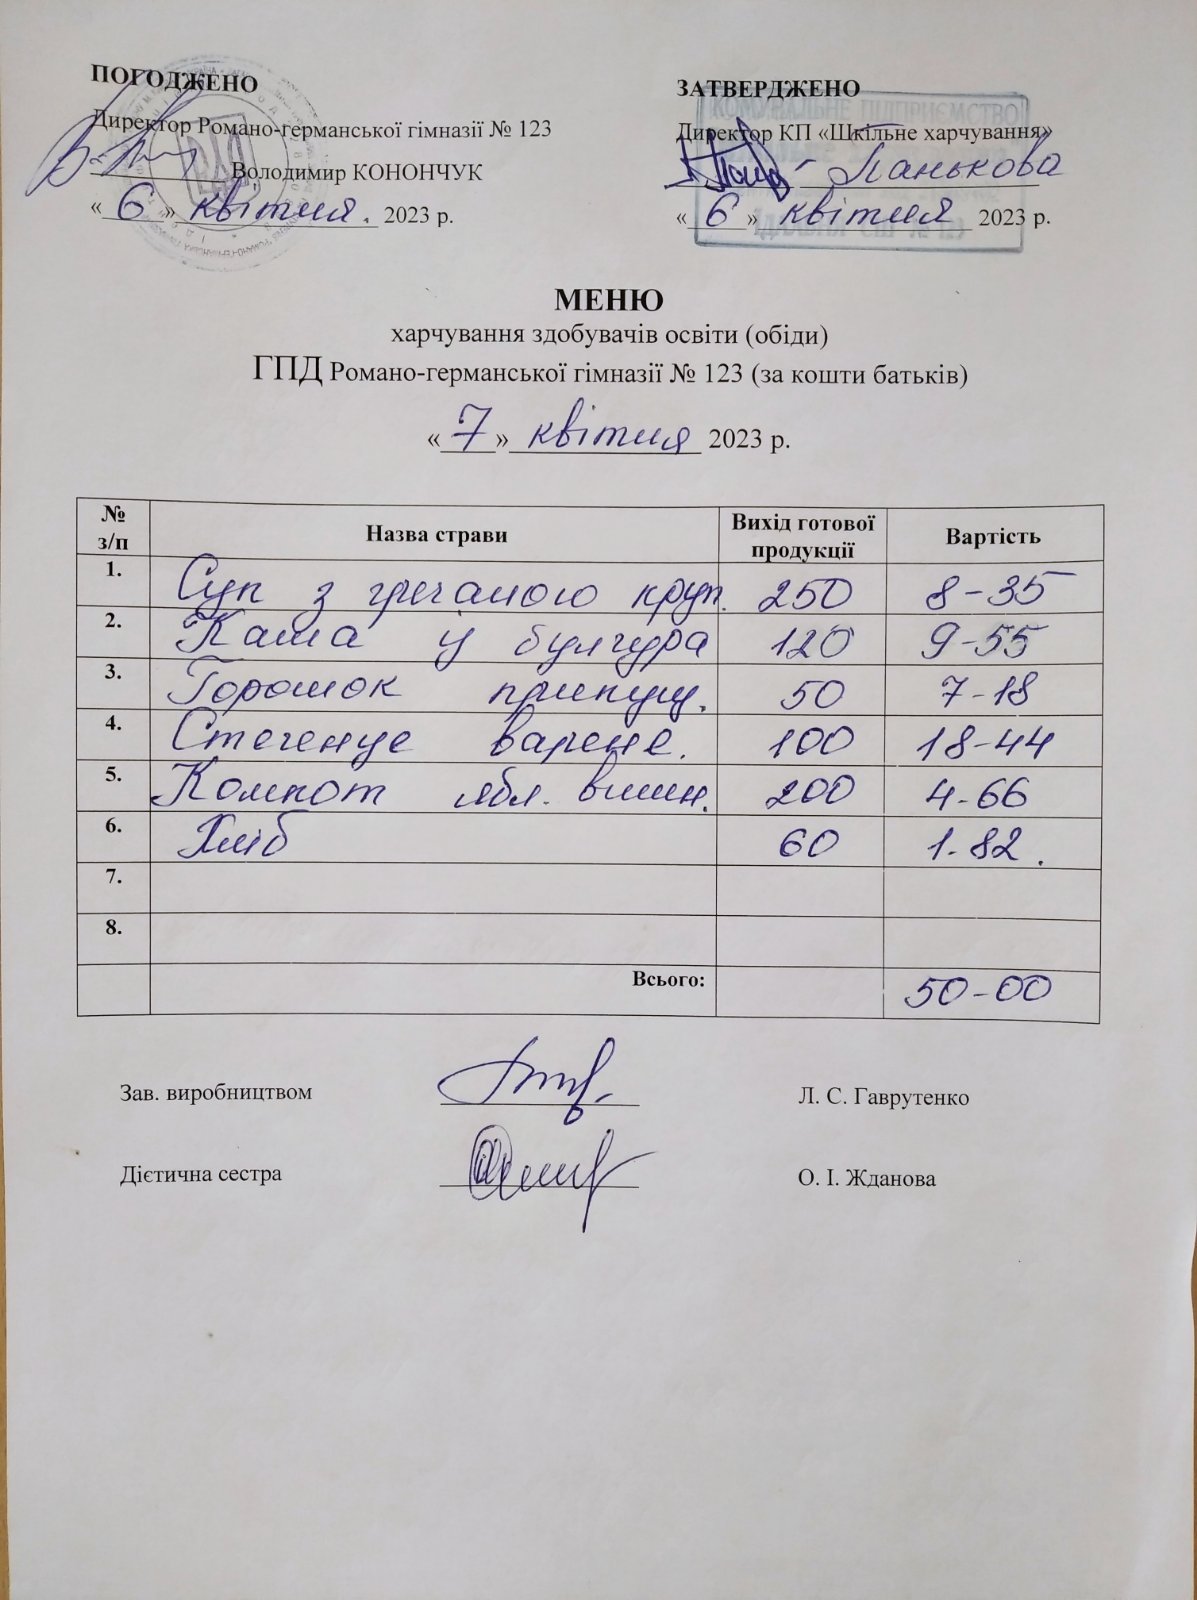 ПОГОДЖЕНО
Директор Романо-германської гімназії № 123
Володимир КОНОНЧУК
« 6 » квітня. 2023 р.
ЗАТВЕРДЖЕНО
КОМУНАЛЬНЕ ПІДПРИЄМСТВО
Директор КП «Шкільне харчування»
Панькова
« 6 » квітня 2023 р.
МЕНЮ
харчування здобувачів освіти (обіди)
ГПД Романо-германської гімназії № 123 (за кошти батьків)
« 7 » квітня 2023 р.
№ з/п Назва страви Вихід готової продукції Вартість
1. Суп з гречаною круп. 250 8-35
2. Каша із булгура 120 9-55
3. Горошок припущ. 50 7-18
4. Стегенце варене. 100 18-44
5. Компот ябл. вишн. 200 4-66
6. Хліб 60 1-82.
7.
8.
Всього: 50-00
Зав. виробництвом Л. С. Гаврутенко
Дієтична сестра О. І. Жданова